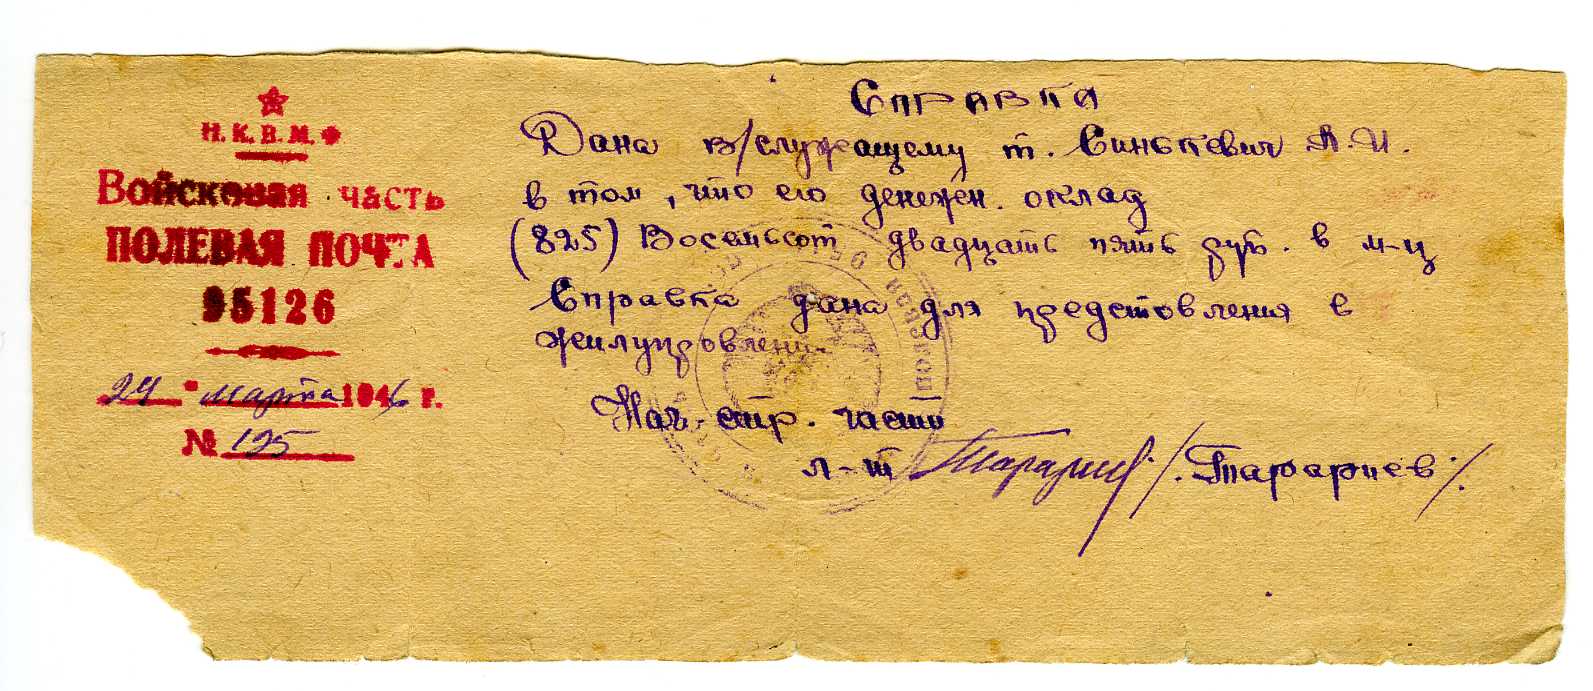 Н.К.В.М.Ф
Войсковая часть
ПОЛЕВАЯ ПОЧТА
95126
24 " марта 1946 г.
№ 125
Справка
Дана в/служащему т. Синькевич А.И.
в том, что его денежен. оклад
(825) Восемьсот двадцать пять руб. в м-ц
Справка дана для предстовления в
жилупровлении
Нач. стр. части
л-т /. Тарариев /.